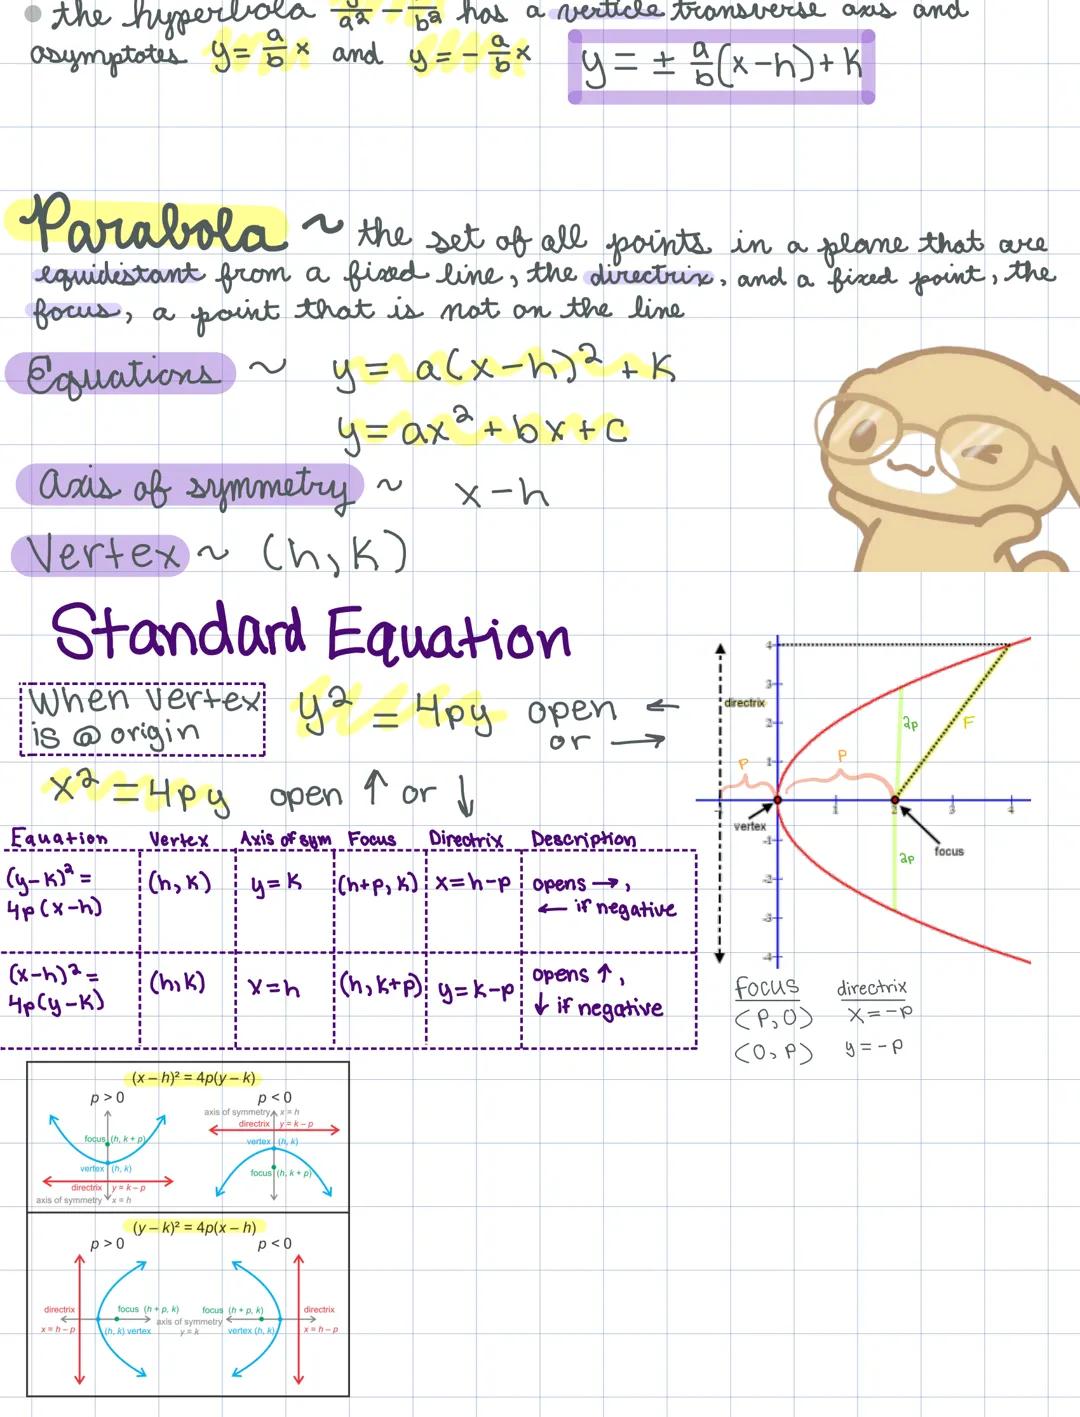 • the hyperbola y²/a² - x²/b² has a verticle transverse axis and
asymptotes y= a/b x and y = - a/b x
y = ± a/b (x-h) + K
Parabola ~ the set of all points in a plane that are
equidistant from a fixed line, the directrix, and a fixed point, the
focus, a point that is not on the line
Equations ~ y = a(x-h)² + K
y = ax² + bx + c
Axis of symmetry ~ x-h
Vertex ~ (h, K)
Standard Equation
When vertex
is @ origin
y² = 4py open ←
or →
x² = 4py open ↑ or ↓
Equation Vertex Axis of sym Focus Directrix Description
(y-K)² =
4p(x-h)
(h, K)
y = K
(h+p, K)
x = h-p
opens →,
← if negative
(x-h)² =
4p(y-K)
(h, K)
x = h
(h, K+p)
y = K-p
opens ↑,
↓ if negative
4
3
2
1
-1
-2
-3
-4
1
2
3
4
directrix
P
P
2p
F
vertex
focus
2p
focus directrix
(P, O) x = -p
(O, P) y = -p
(x – h)² = 4p(y – k)
p > 0
focus (h, k + p)
vertex (h, k)
directrix y = k – p
axis of symmetry x = h
p < 0
axis of symmetry x = h
directrix y = k – p
vertex (h, k)
focus (h, k + p)
(y – k)² = 4p(x – h)
p > 0
directrix
x = h – p
focus (h + p, k)
(h, k) vertex
axis of symmetry
y = k
p < 0
focus (h + p, k)
vertex (h, k)
directrix
x = h – p